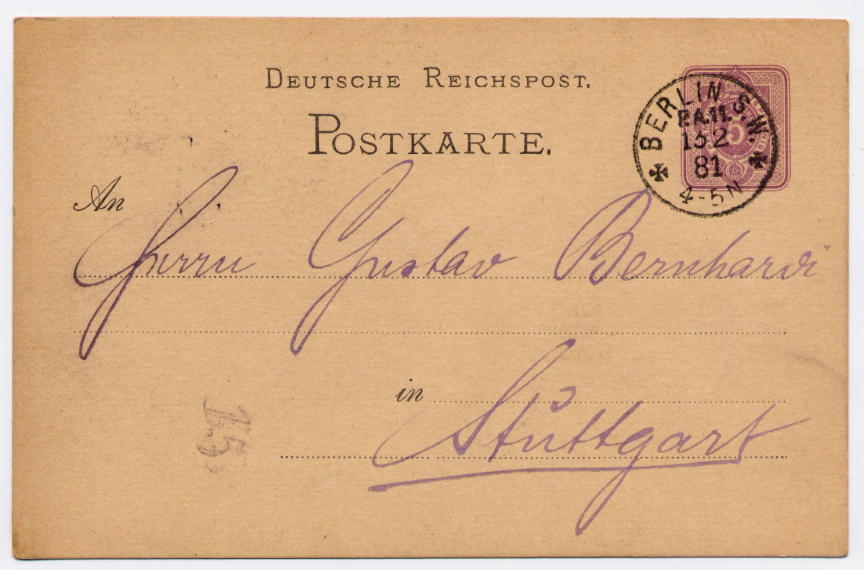 DEUTSCHE REICHSPOST.
POSTKARTE.
BERLIN S.W.
P.A.11.
13 2
81
4-5N
5
An
Herrn Gustav Bernhardi
in
Stuttgart